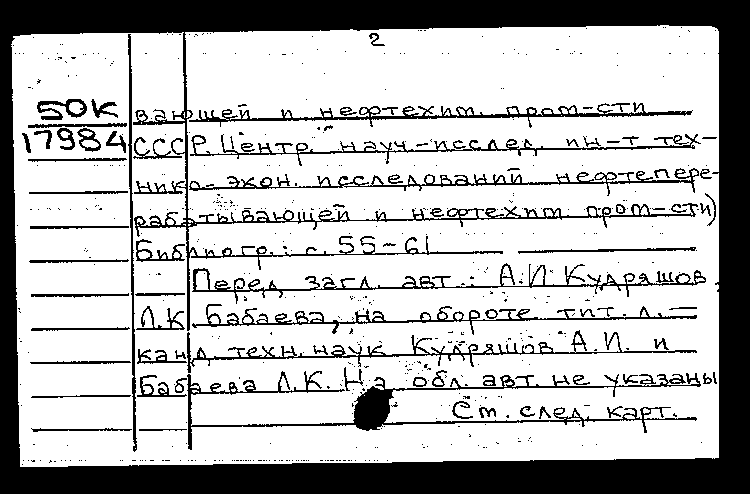 2
50К вающей и нефтехим. пром-сти
17984 СССР. Центр. науч.-исслед. ин-т тех-
нико-экон. исследований нефтепере-
рабатывающей и нефтехим. пром-сти)
Библиогр.: с. 55-61
Перед загл. авт.: А.И. Кудряшов,
Л.К. Бабаева, на обороте тит. л. =
канд. техн. наук Кудряшов А.И. и
Бабаева Л.К. На обл. авт. не указаны
См. след. карт.